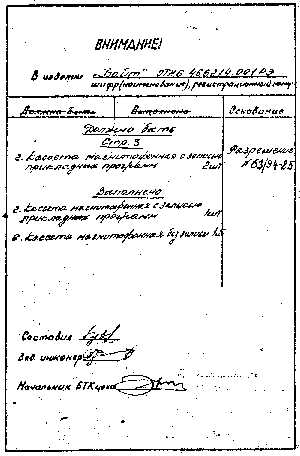 ВНИМАНИЕ!
В изделии "Байт"
шифр (наименование), регистрационный номер
Должно быть Выполнено Основание
Должно быть
Стр. 3
2. Кассета магнитофонная с записью
прикладных программ 2шт
Разрешение
№63/94-85
Выполнено
2. Кассета магнитофонная с записью
прикладных программ 1шт
в. Кассета магнитофонная без записи
Составил
Вед. инженер
Начальник БТК цеха